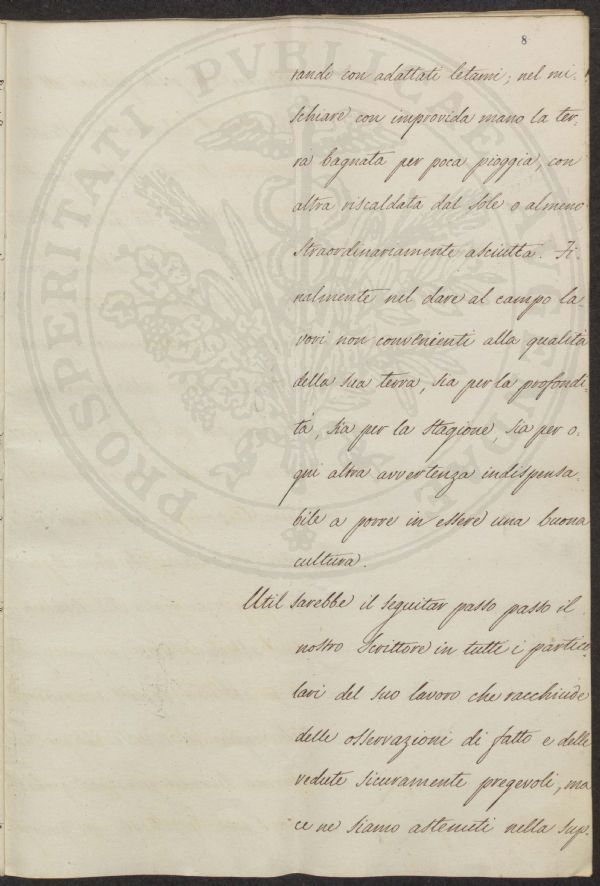 8
rando con adattati letami; nel mi-
schiare con improvida mano la ter-
ra bagnata per poca pioggia, con
altra riscaldata dal sole o almeno
straordinariamente asciutta. Fi-
nalmente nel dare al campo la-
vori non convenienti alla qualità
della sua terra, sia per la profondi-
tà, sia per la stagione, sia per o-
gni altra avvertenza indispensa-
bile a porre in essere una buona
cultura.
Util sarebbe il seguitar passo passo il
nostro Scrittore in tutti i partico
lari del suo lavoro che racchiude
delle osservazioni di fatto e delle
vedute sicuramente pregevoli, ma
ce ne siamo astenuti nella sup-
PROSPERITATI PVBLICAE AVGENDAE